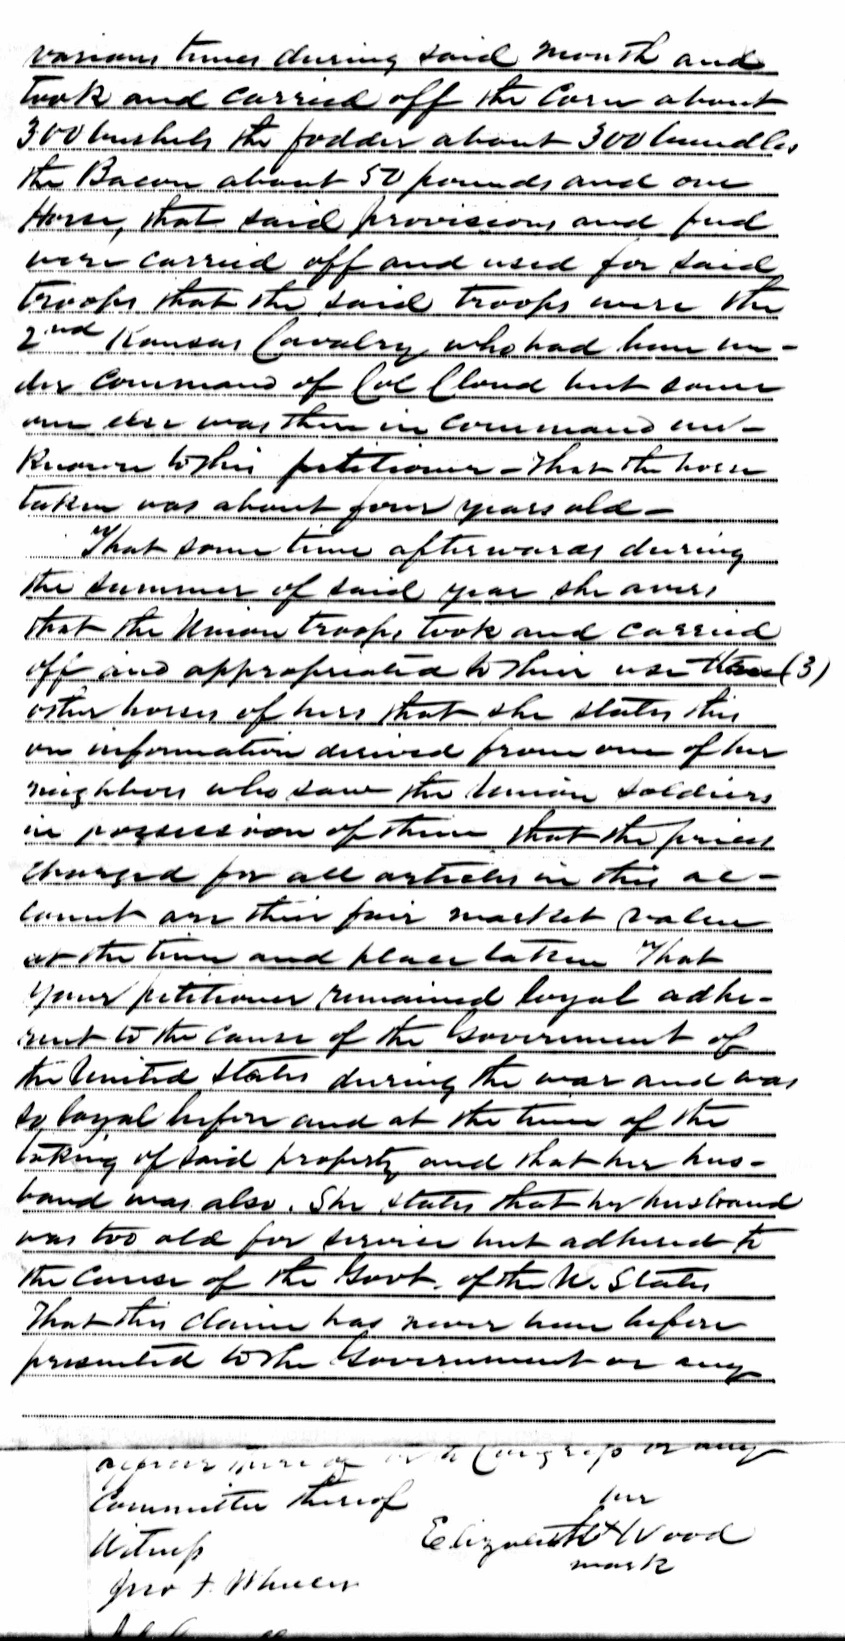 various times during said month and
took and carried off the Corn about
300 bushels the fodder about 300 bundles
the Bacon about 50 pounds and one
Horse, that said provisions and feed
were carried off and used for said
troops that the said troops were the
2nd Kansas Cavalry who had been un-
der command of Col Cloud but some
one else was then in command un-
known to this petitioner - That the horse
taken was about four years old -
That some time afterwards during
the summer of said year she avers
that the Union troops took and carried
off and appropriated to their use three (3)
other horses of hers that she states this
on information derived from one of her
neighbors who saw the Union soldiers
in possession of them that the prices
charged for all articles in this ac-
count are their fair market value
at the time and place taken That
your petitioner remained loyal adhe-
rent to the cause of the Government of
the United States during the war and was
so loyal before and at the time of the
taking of said property and that her hus-
band was also. She states that her husband
was too old for service but adhered to
the cause of the Govt. of the U. States
That this claim has never been before
presented to the Government or any
officer thereof or to Congress or any
Committee thereof her
Witness Elizabeth X Wood
Jno F. Wheeler mark